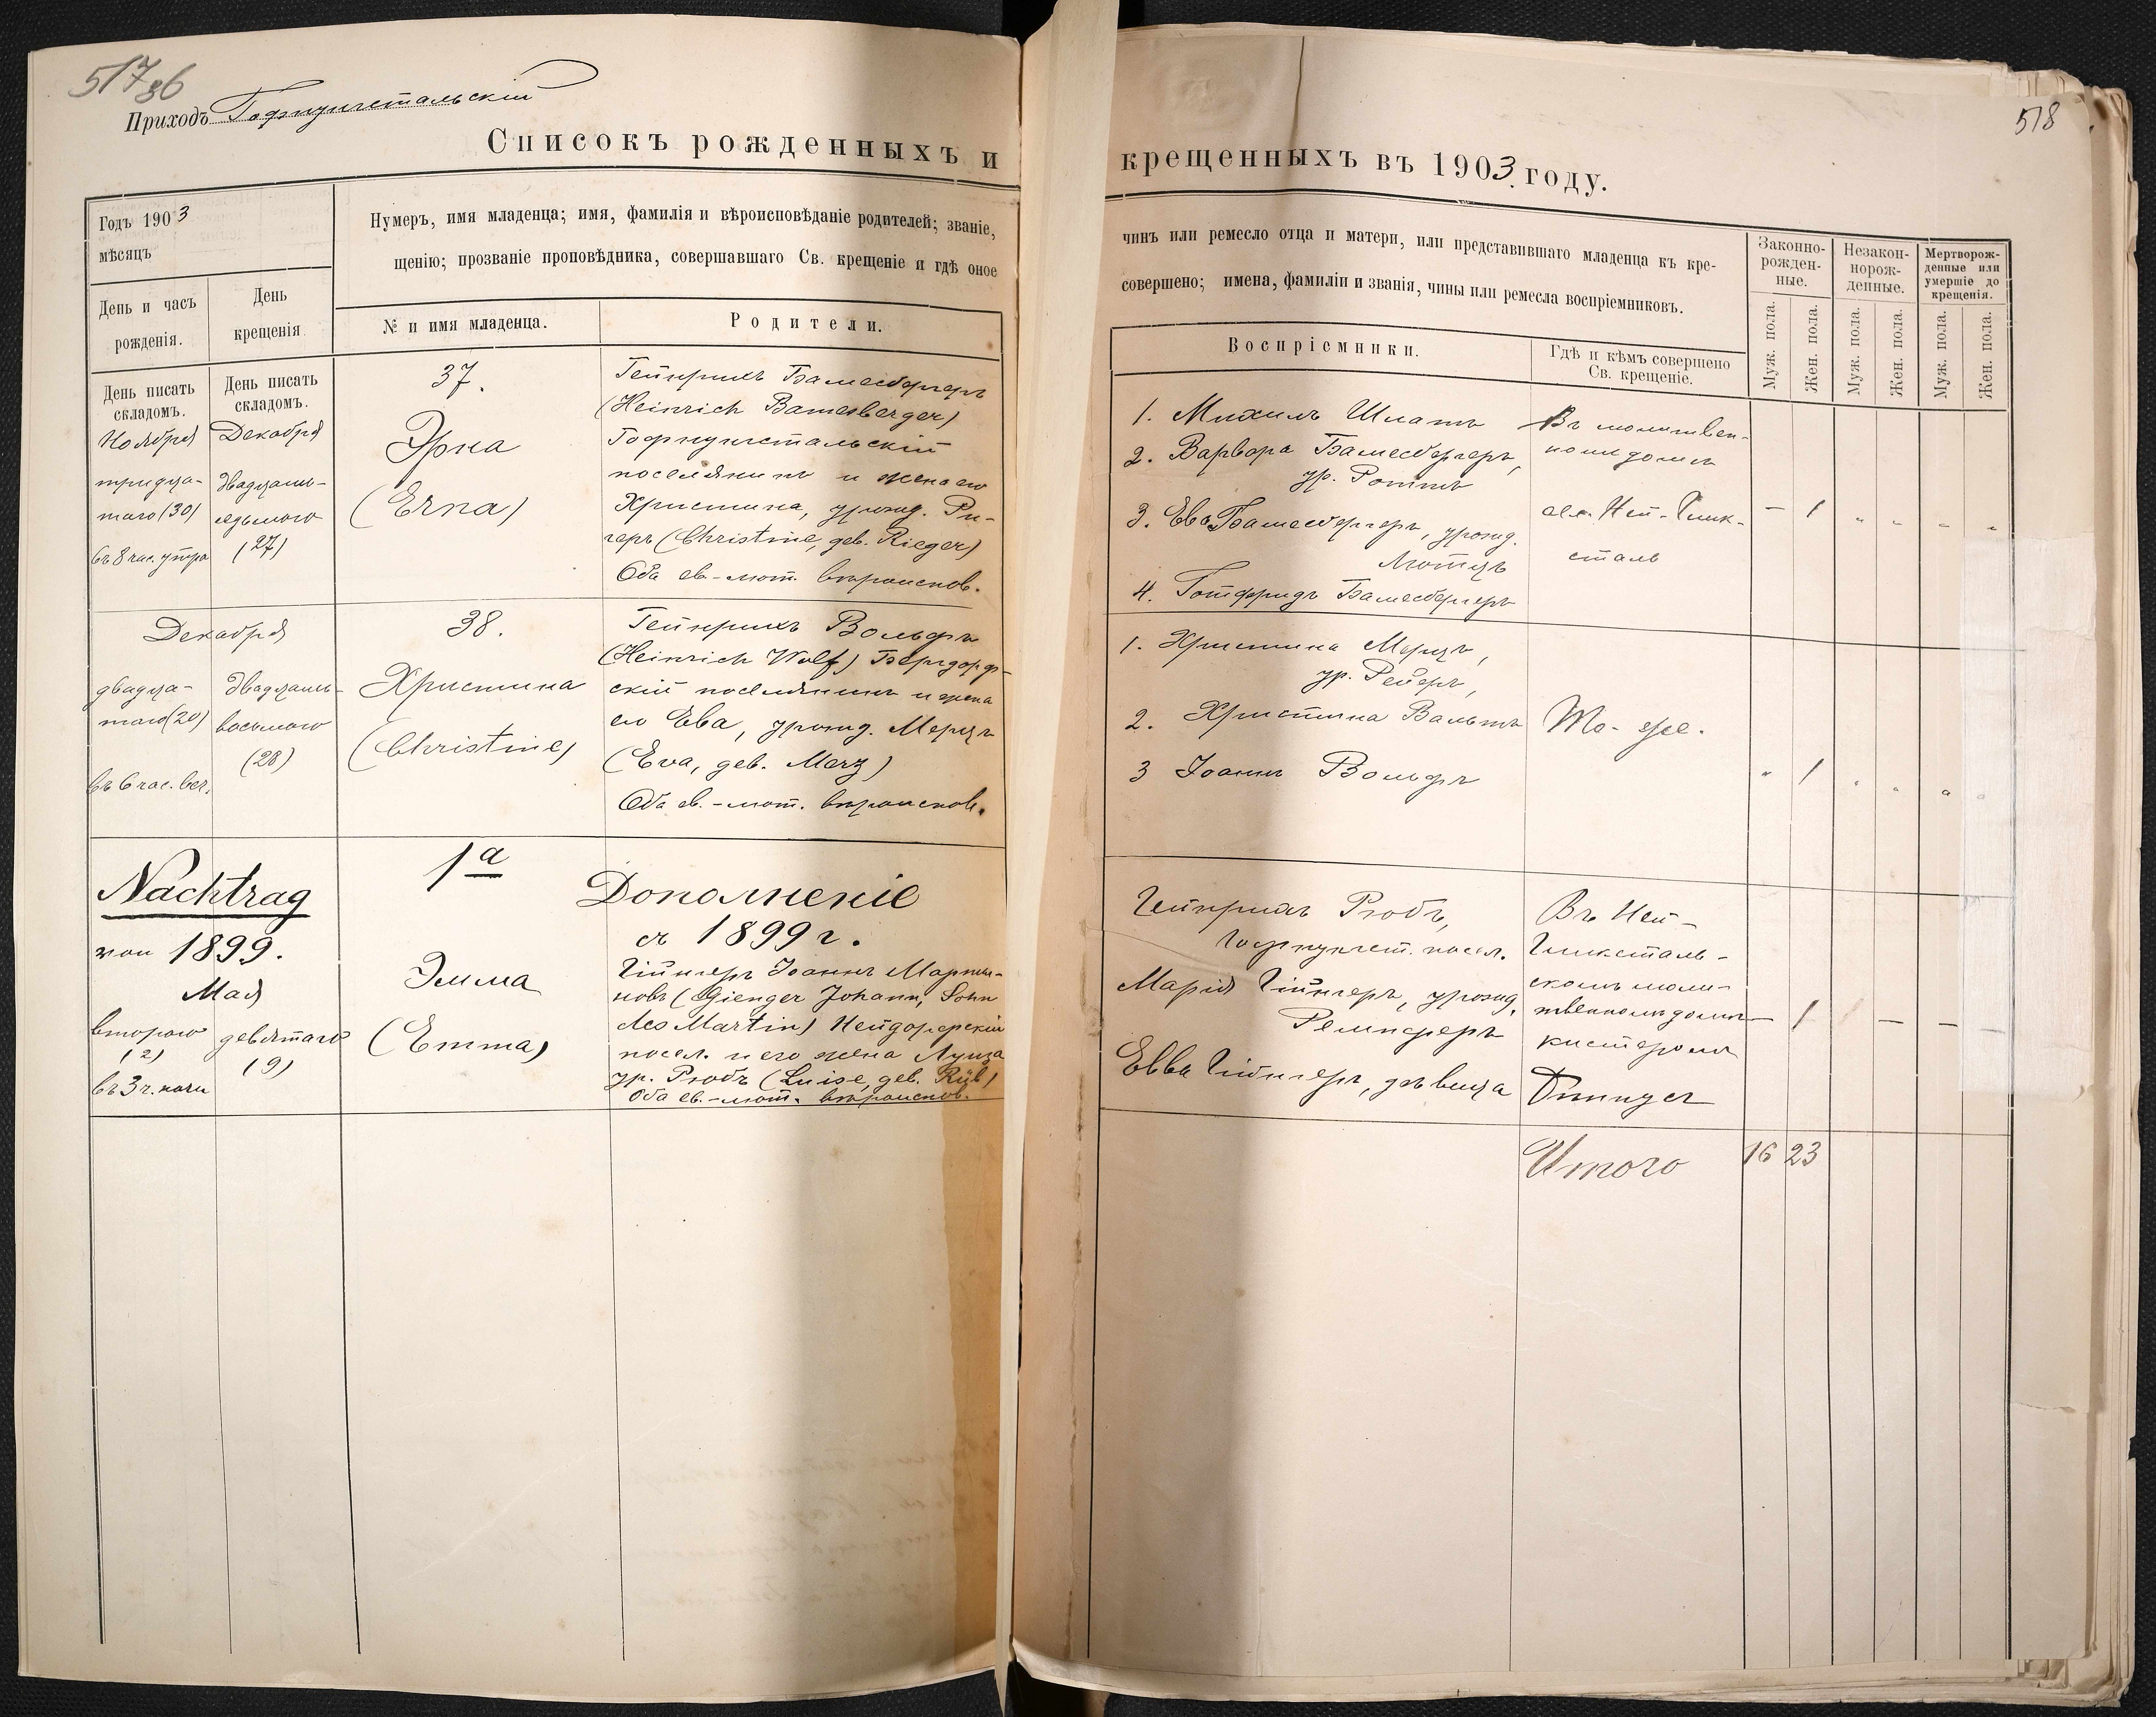 517 зб
518
Приходъ Гофнунгстальскій
Списокъ рожденныхъ и крещенныхъ въ 1903 году.
Годъ 1903
мѣсяцъ
День и часъ
рожденія.
День
крещенія
Нумеръ, имя младенца; имя, фамилія и вѣроисповѣданіе родителей; званіе,
щенію; прозваніе проповѣдника, совершавшаго Св. крещеніе и гдѣ оное
№ и имя младенца.
Родители.
чинъ или ремесло отца и матери, или представившаго младенца къ кре-
совершено; имена, фамиліи и званія, чины или ремесла воспріемниковъ.
Воспріемники.
Гдѣ и кѣмъ совершено
Св. крещеніе.
Законно-
рожден-
ные.
Незакон-
норож-
денные.
Мертворож-
денные или
умершіе до
крещенія.
Муж. пола.
Жен. пола.
Муж. пола.
Жен. пола.
Муж. пола.
Жен. пола.
День писать
складомъ.
День писать
складомъ.
Ноября
тридца-
таго (30)
въ 8 час. утра
Декабря
двадцать-
седьмого
(27)
37.
Эрна
(Erna)
Гейнрихъ Бамесбергеръ
(Heinrich Bamesberger)
Гофнунгстальскій
поселянинъ и жена его
Христина, урожд. Ри-
геръ (Christine, geb. Rieger)
Оба ев.-лют. вѣроиспов.
1. Михаилъ Шлатъ
2. Варвара Бамесбергеръ,
ур. Роттъ
3. Ева Бамесбергеръ, урожд.
Лютцъ
4. Готфридъ Бамесбергеръ
Въ молитвен-
номъ домѣ
сел. Ней-Глик-
сталь
— 1 " " " "
Декабря
двадца-
таго (20)
въ 6 час. веч.
двадцать-
восьмого
(28)
38.
Христина
(Christine)
Гейнрихъ Вольфъ
(Heinrich Wolf) Бергдорф-
скій поселянинъ и жена
его Ева, урожд. Мерцъ
(Eva, geb. Merz)
Оба ев.-лют. вѣроиспов.
1. Христина Мерцъ,
ур. Рейеръ,
2. Христина Вальтъ
3 Іоаннъ Вольфъ
То-же.
" 1 " " " "
Nachtrag
von 1899.
Мая
второго
(2)
въ 3 ч. ночи
девятаго
(9)
1a
Эмма
(Emma)
Дополненіе
съ 1899 г.
Гійнгеръ Іоаннъ Марти-
новъ (Gienger Johann, Sohn
des Martin) Нейдорфскій
посел. и его жена Луиза
ур. Рюбъ (Luise, geb. Rüb)
Оба ев.-лют. вѣроиспов.
Гейнрихъ Рюбъ,
Гофнунгст. посел.
Марія Гійнгеръ, урожд.
Ремпферъ
Евва Гійнгеръ, дѣвица
Въ Ней-
Гликсталь-
скомъ моли-
твенномъ домѣ
кистеромъ
— 1 — — —
Итого 16 23